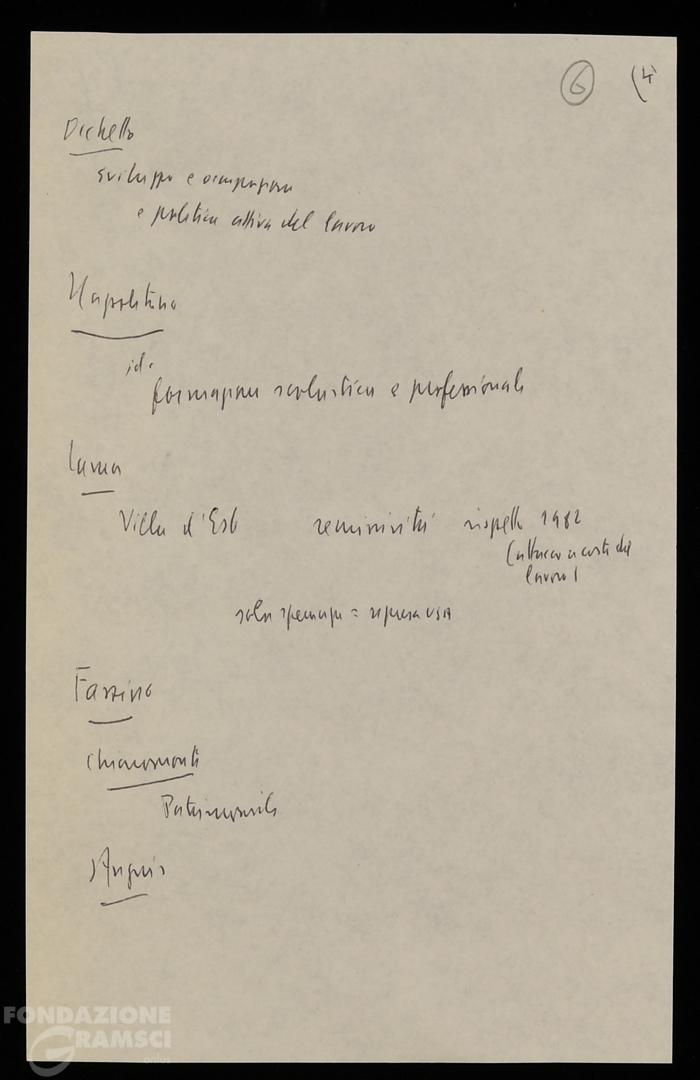 6 (4
sviluppo e occupazione
e politica attiva del lavoro
Napolitano
id.
formazione scolastica e professionale
Lama
Villa d'Este rispetto 1982
(attacco a costo del
lavoro)
sola speranza = ripresa USA
Chiaromonte
Patrimoniale
FONDAZIONE
GRAMSCI
onlus